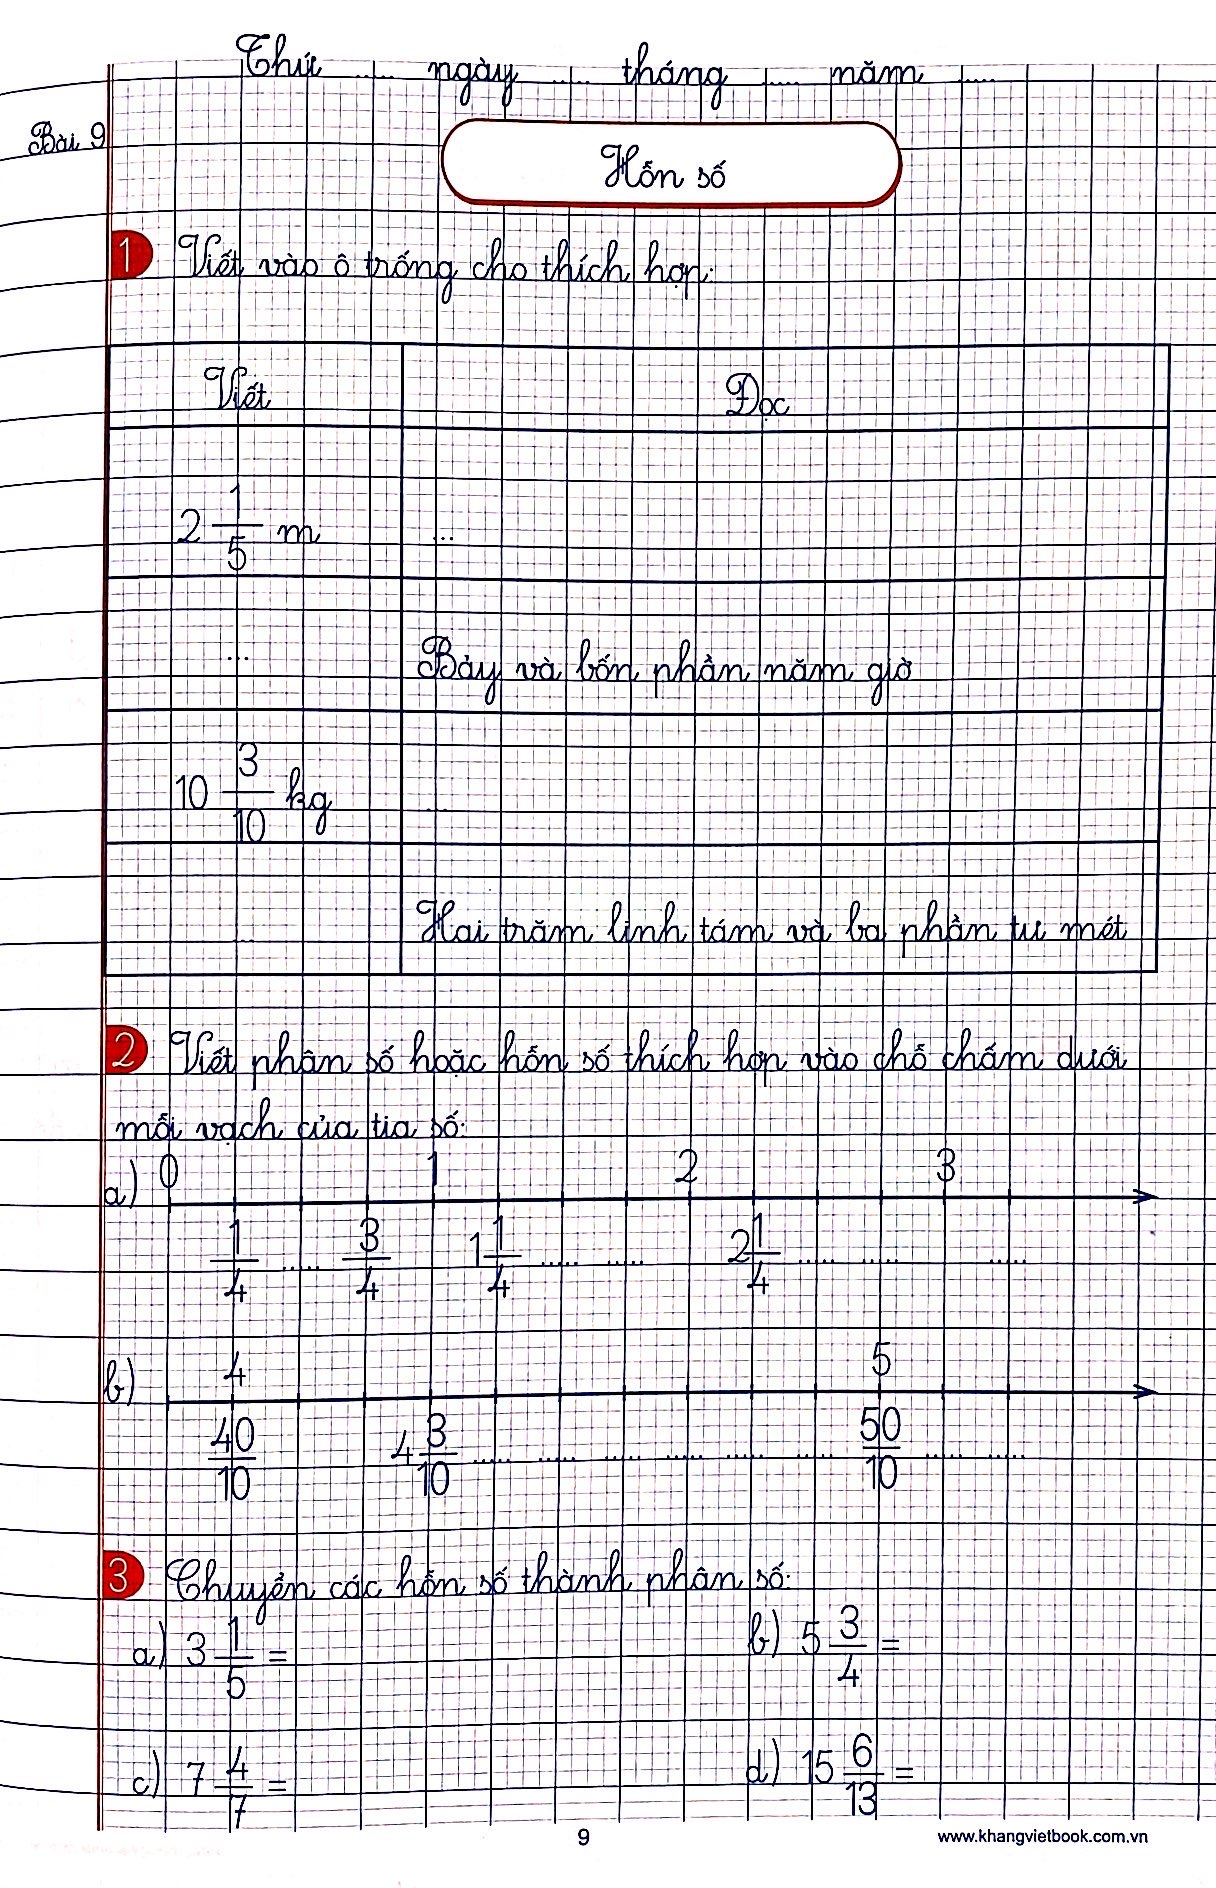 Thứ ..... ngày ..... tháng ..... năm .....
Bài 9
Hỗn số
1 Viết vào ô trống cho thích hợp:
Viết Đọc
2 1/5 m ...
... Bảy và bốn phần năm giờ
10 3/10 kg ...
... Hai trăm linh tám và ba phần tư mét
2 Viết phân số hoặc hỗn số thích hợp vào chỗ chấm dưới
mỗi vạch của tia số:
a) 0 1 2 3
1/4 ..... 3/4 1 1/4 ..... ..... 2 1/4 ..... ..... .....
b) 4 5
40/10 4 3/10 ..... ..... ..... ..... ..... ..... 50/10 ..... .....
3 Chuyển các hỗn số thành phân số:
a) 3 1/5 = b) 5 3/4 =
c) 7 4/7 = d) 15 6/13 =
9 www.khangvietbook.com.vn